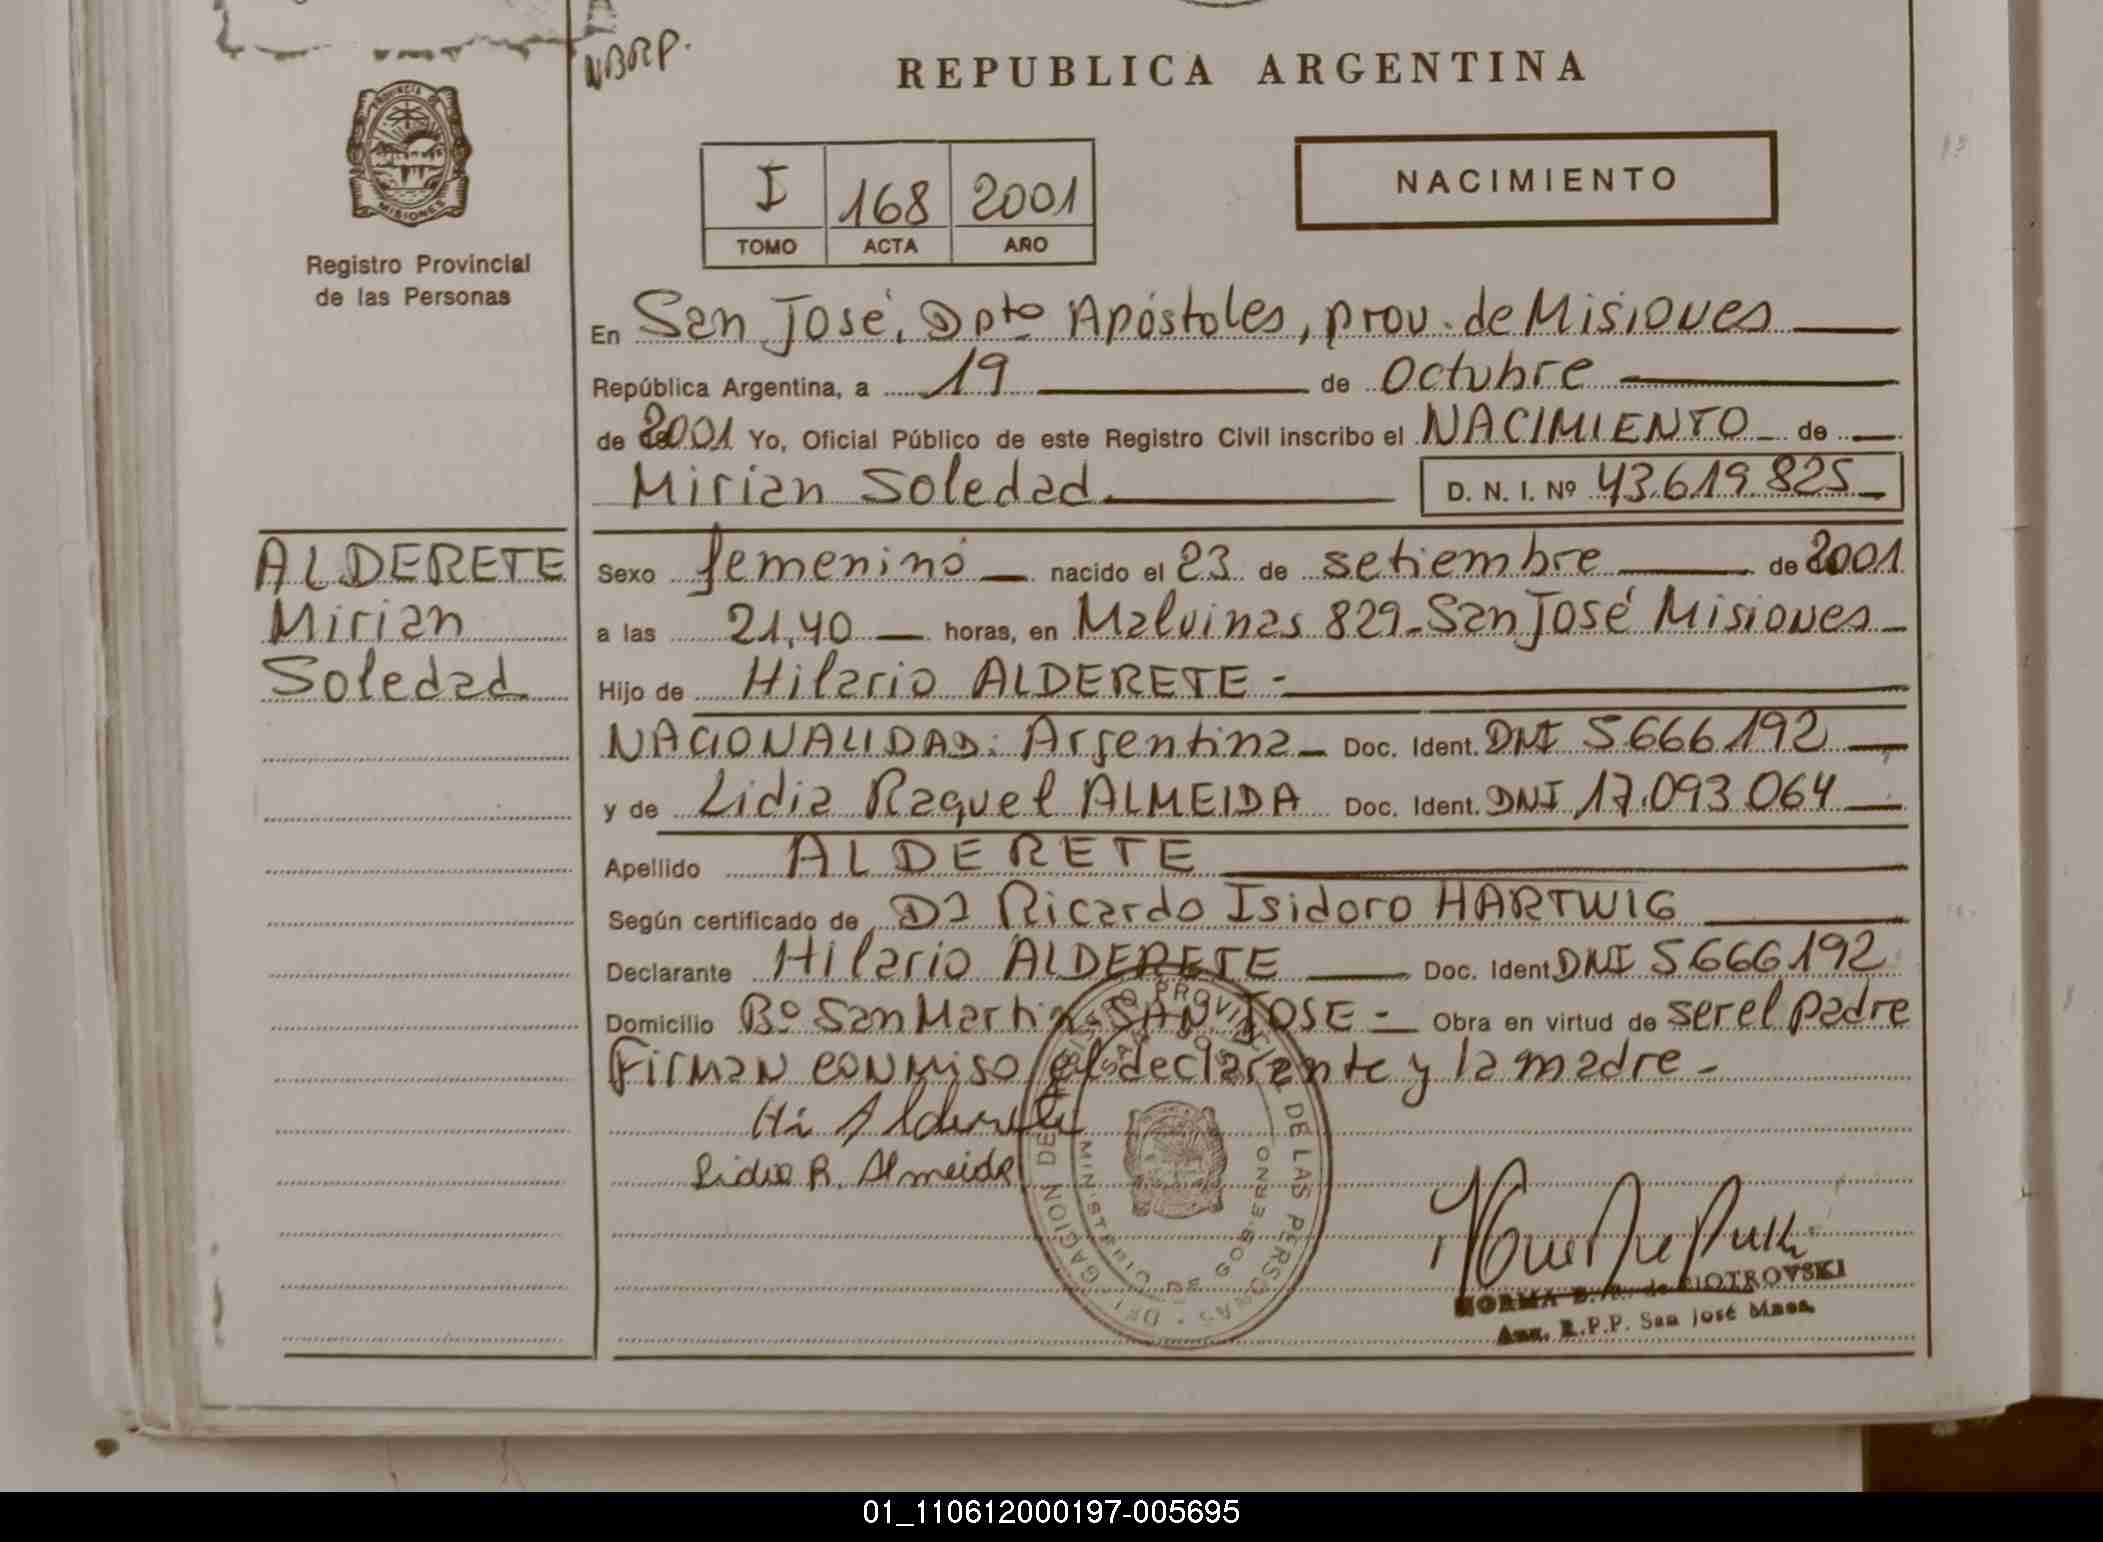 NBRP.
REPUBLICA ARGENTINA
PROVINCIA DE MISIONES
Registro Provincial
de las Personas
I 168 2001
TOMO ACTA AÑO
NACIMIENTO
En San José, Dpto Apóstoles, prov. de Misiones
República Argentina, a 19 de Octubre
de 2001 Yo, Oficial Público de este Registro Civil inscribo el NACIMIENTO de
Mirian Soledad D. N. I. Nº 43.619.825
ALDERETE
Mirian
Soledad
Sexo femenino nacido el 23 de setiembre de 2001
a las 21,40 horas, en Malvinas 829 - San José Misiones
Hijo de Hilario ALDERETE -
NACIONALIDAD: Argentina Doc. Ident. DNI 5.666.192
y de Lidia Raquel ALMEIDA Doc. Ident. DNI 17.093.064
Apellido ALDERETE
Según certificado de Dr Ricardo Isidoro HARTWIG
Declarante Hilario ALDERETE Doc. Ident DNI 5.666.192
Domicilio Bº San Martin - SAN JOSE - Obra en virtud de ser el padre
Firman conmigo el declarante y la madre -
Hi Alderete
Lidia R. Almeida
DELEGACION DEL REGISTRO PROVINCIAL DE LAS PERSONAS
SAN JOSE
MINISTERIO DE GOBIERNO
NORMA B. de PIOTROVSKI
Aux. R.P.P. San José Mnes.
01_110612000197-005695